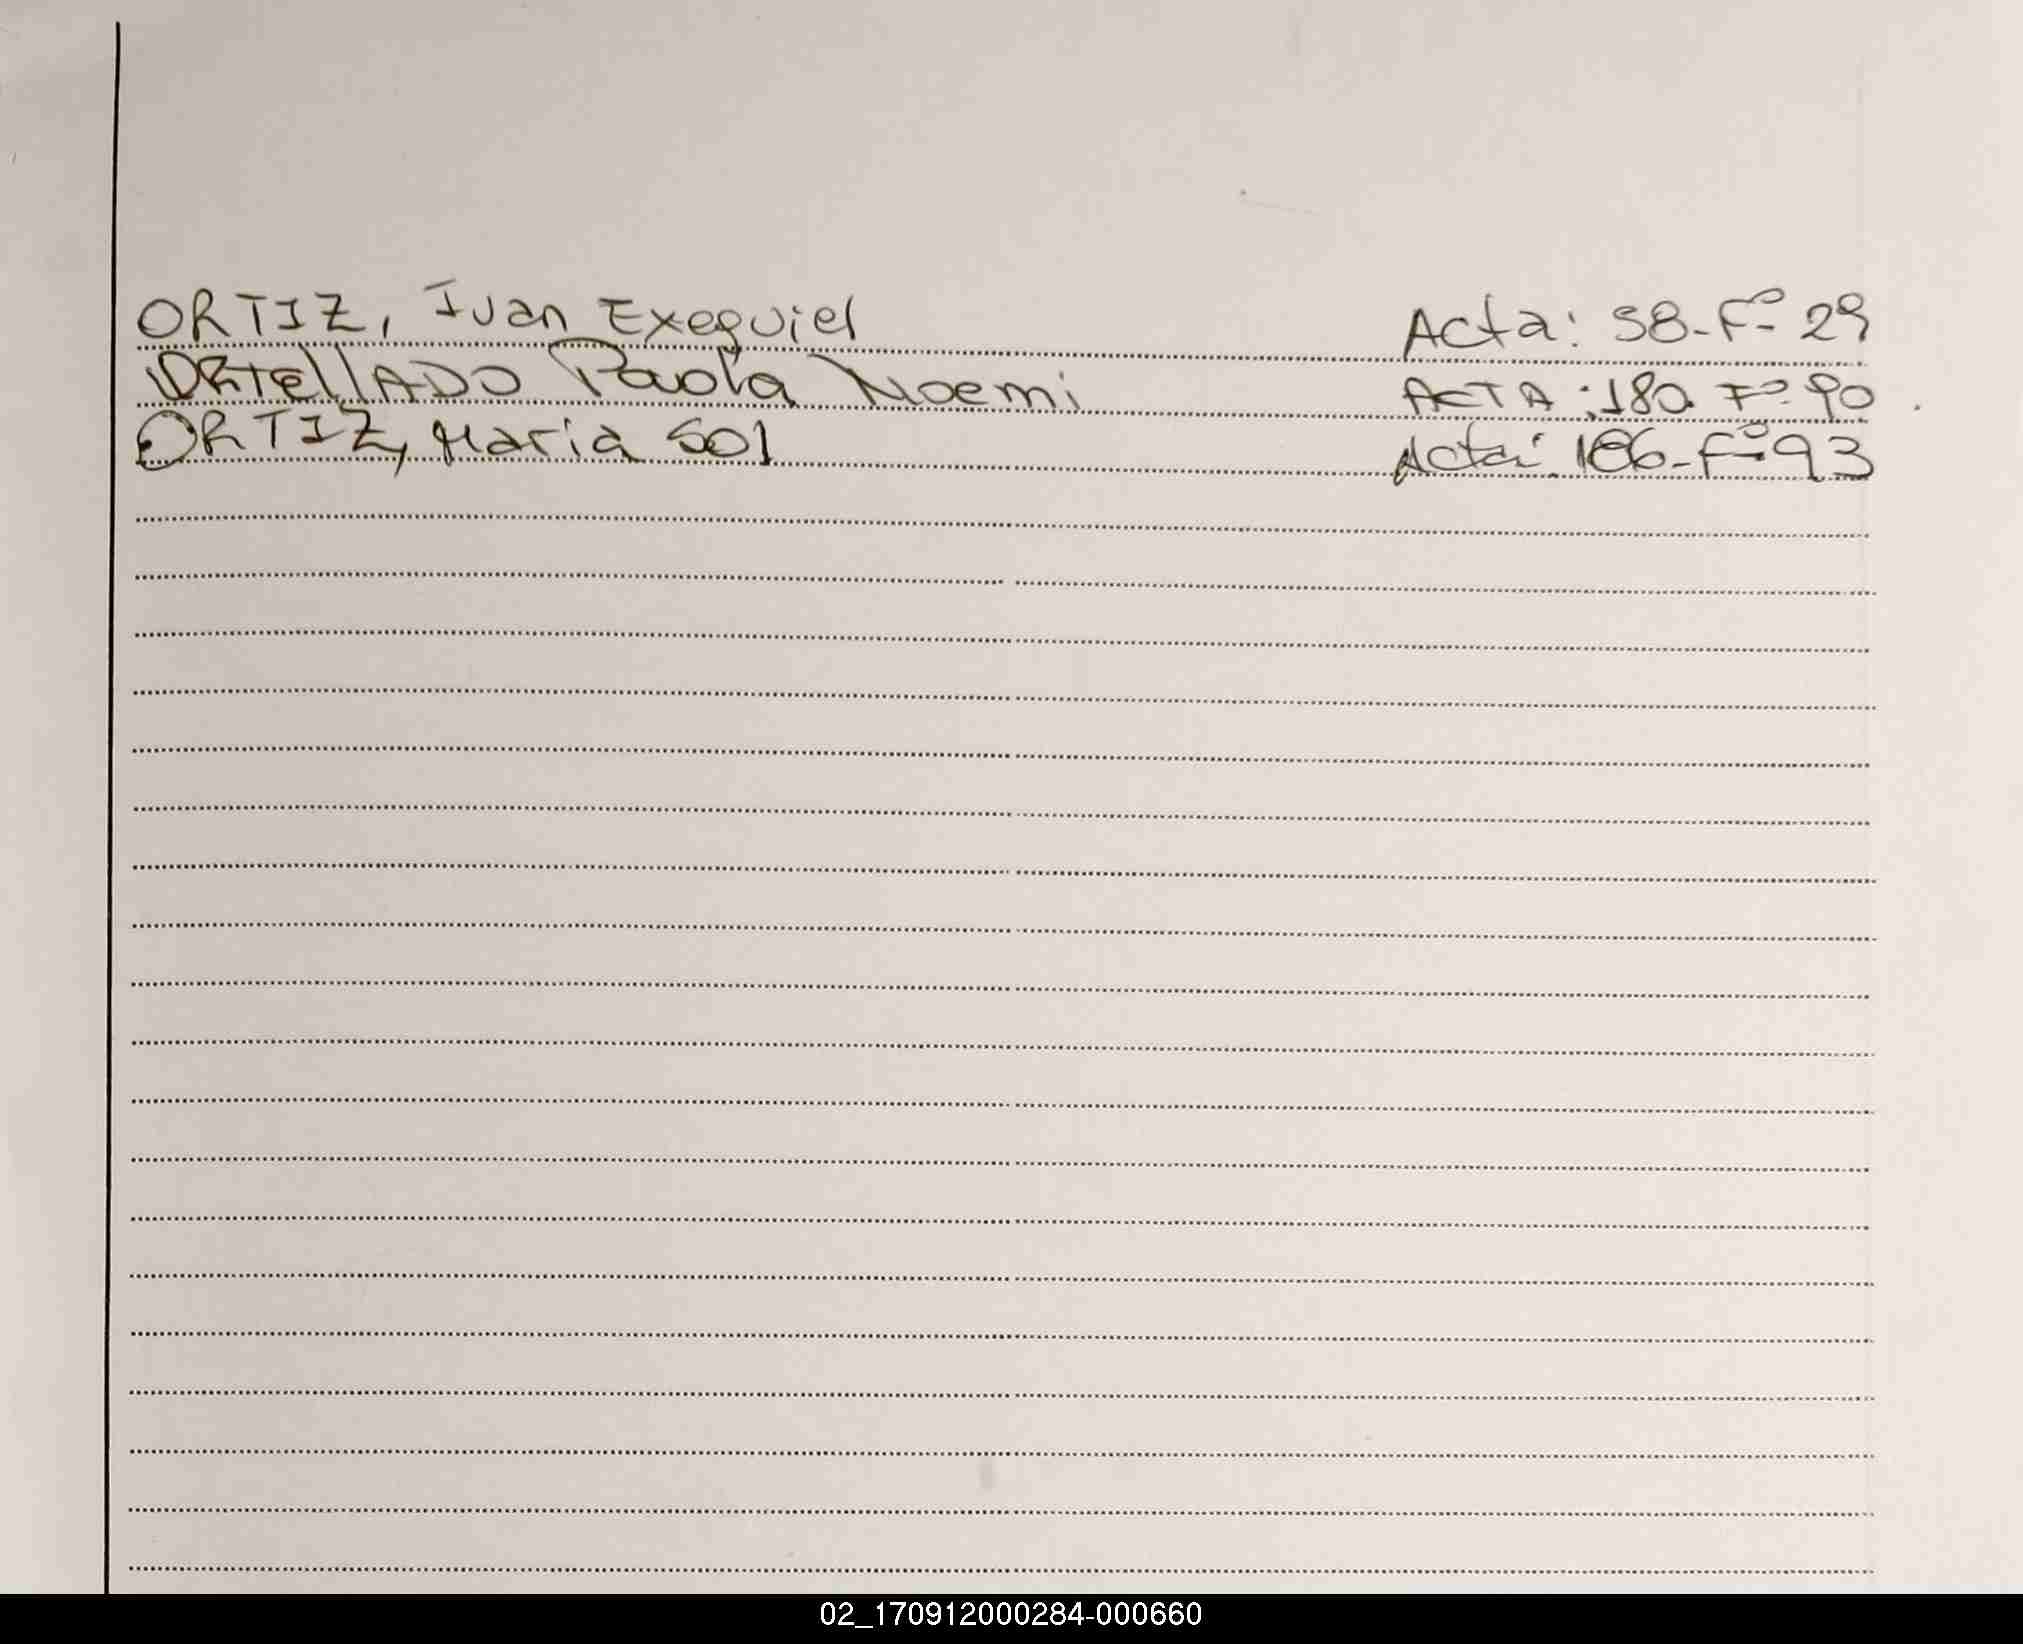 ORTIZ, Ivan Exequiel Acta: 58-Fº 29
ORtellADO Paola Noemi ACTA: 180 Fº 90.
ORTIZ, Maria Sol Acta: 186-Fº 93
02_170912000284-000660